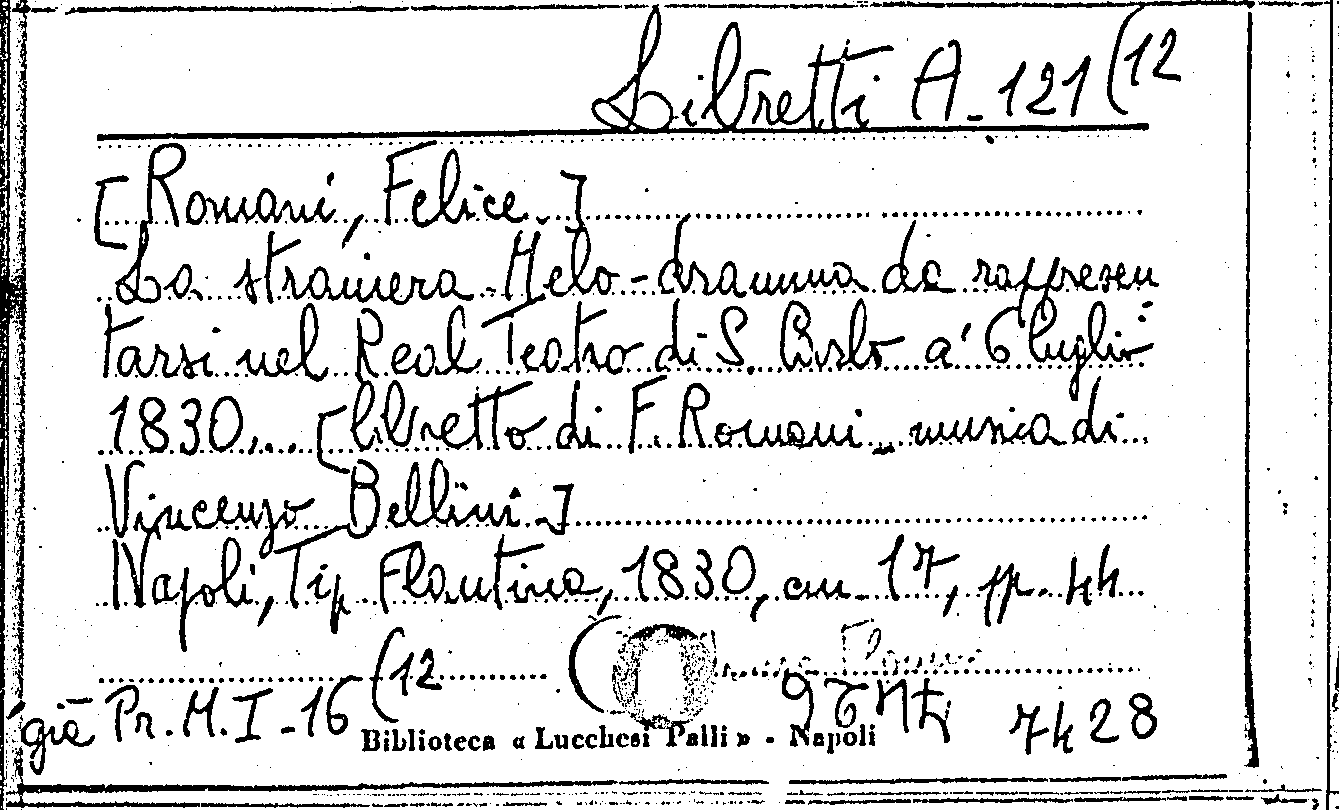 Libretti A-121(12
[Romani, Felice.]
La straniera. Melo-dramma da rappresen
tarsi nel Real Teatro di S. Carlo a' 6 luglio
1830... [libretto di F. Romani - musica di
Vincenzo Bellini]
Napoli, Tip. Flautina, 1830, cm. 17, pp. 44
già Pr. M. I-16(12
Biblioteca « Lucchesi Palli » - Napoli
7428